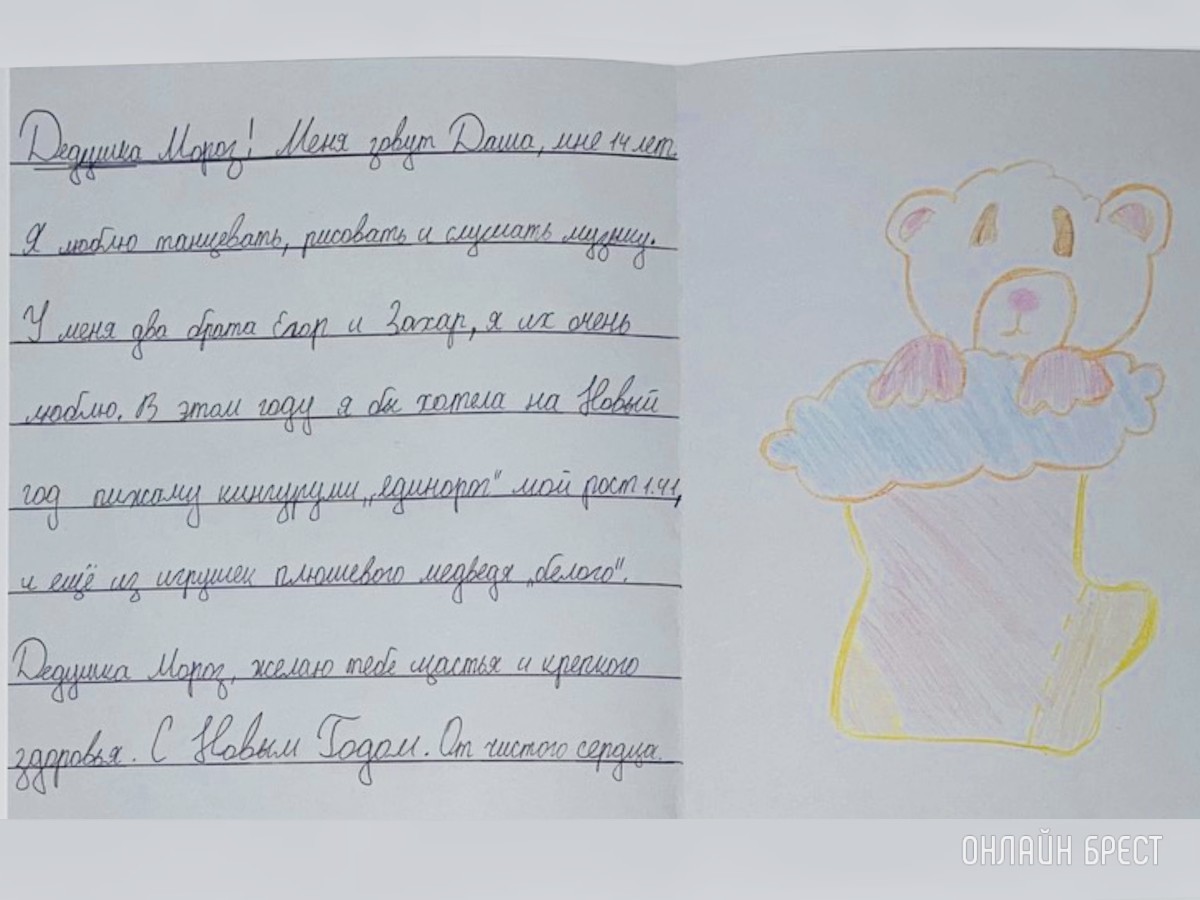 Дедушка Мороз! Меня зовут Даша, мне 14 лет.
Я люблю танцевать, рисовать и слушать музыку.
У меня два брата Егор и Захар, я их очень
люблю. В этом году я бы хотела на Новый
год пижаму кингуруми „единорг" мой рост 1.41,
и ещё из игрушек плюшевого медведя „белого".
Дедушка Мороз, желаю тебе щастья и крепкого
здоровья. С Новым Годом. От чистого сердца.
ОНЛАЙН БРЕСТ